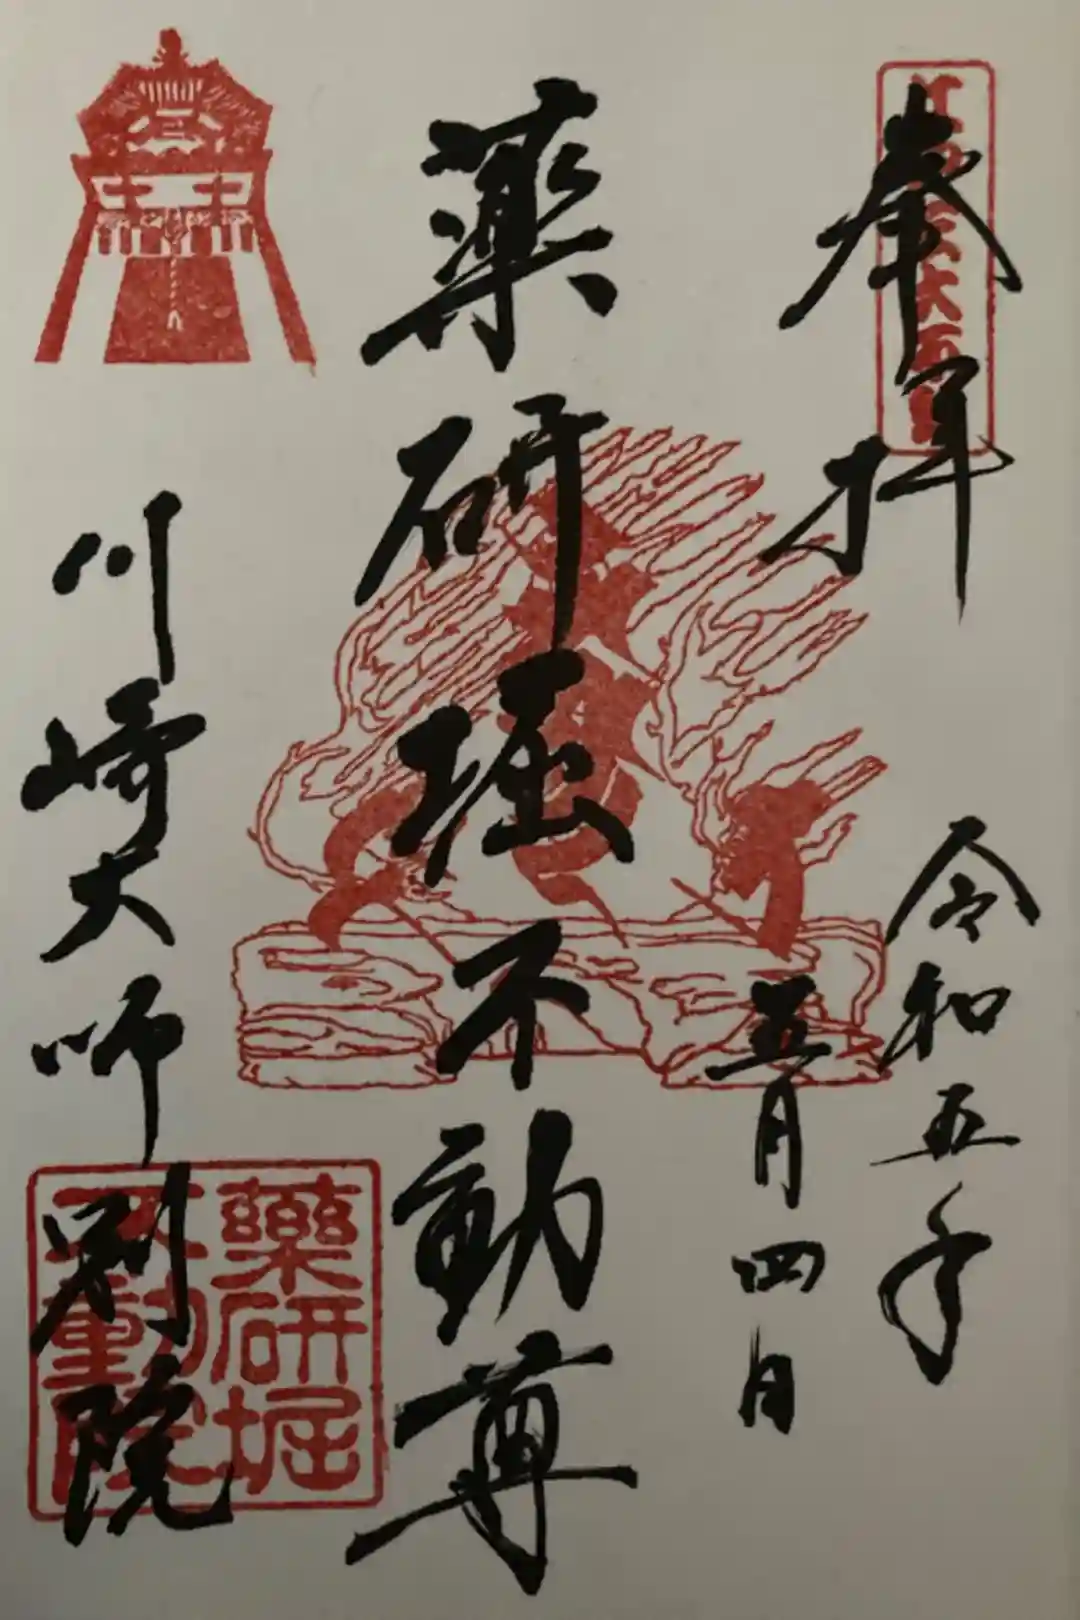 奉拝
令和五年
五月四日
薬研堀不動尊
川崎大師別院
薬研堀
不動院